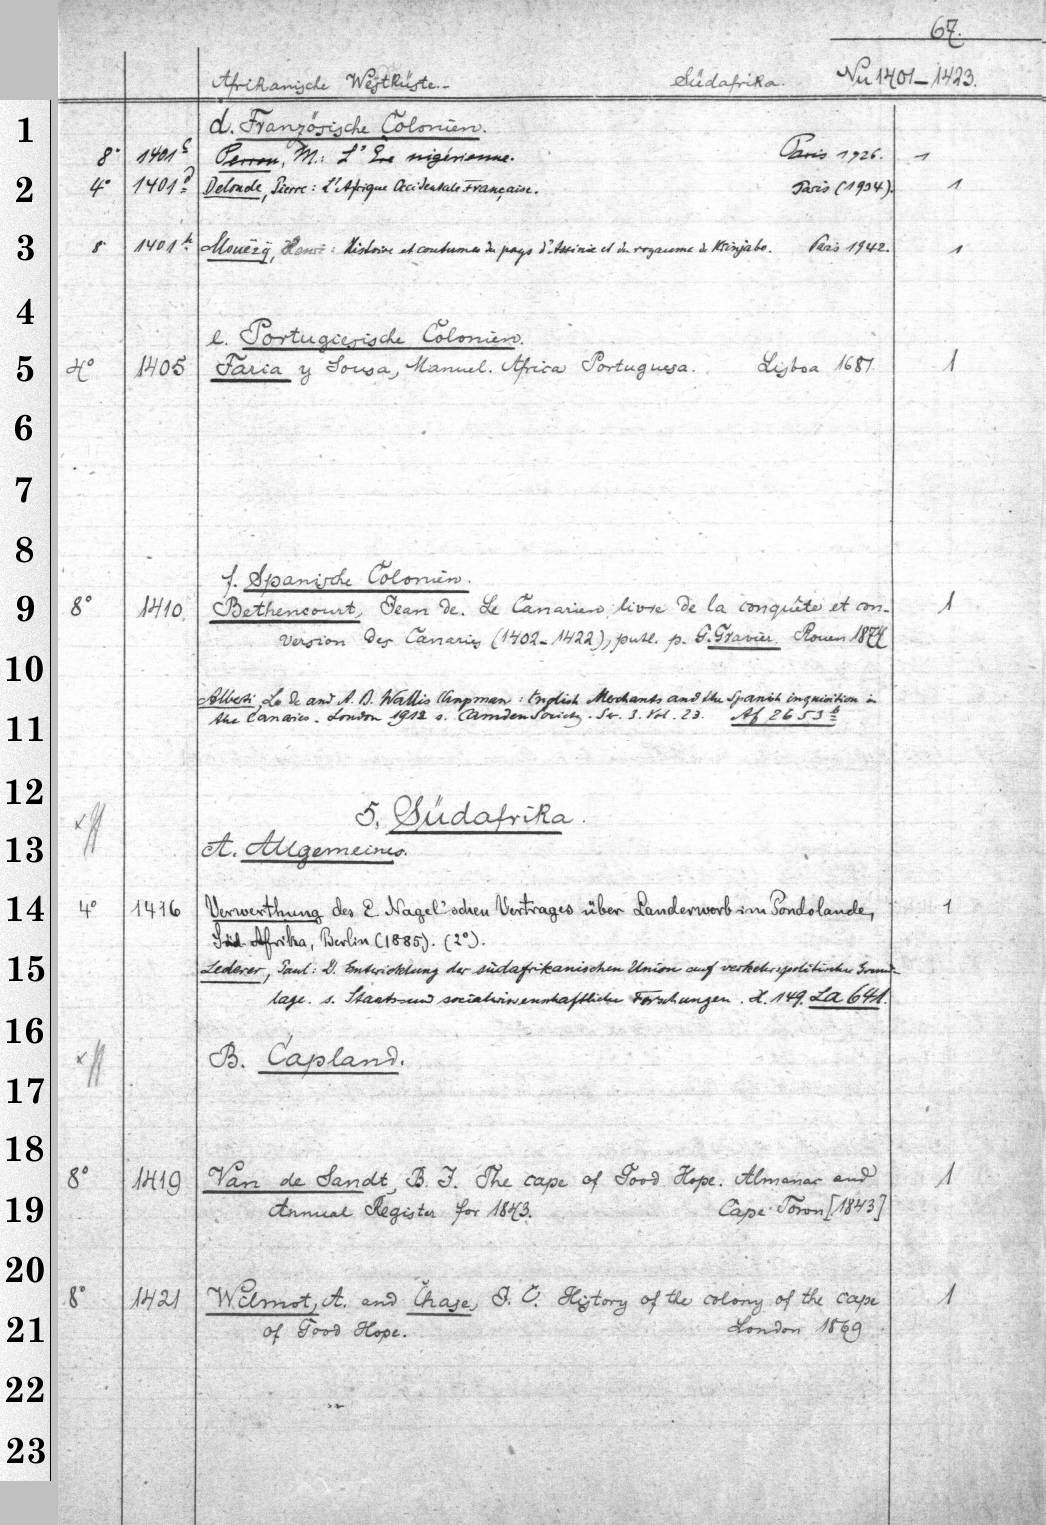 67.
Afrikanische Westküste.- Südafrika. Nu 1401-1423.
1 d. Französische Colonien.
8° 1401c Perron, M.: L'Ere nigérienne. Paris 1926. 1
2 4° 1401d Delonde, Pierre: L'Afrique Occidentale Française. Paris (1934). 1
3 8° 1401k Mouëzy, Henri: Histoire et coutumes du pays d'Assinie et du royaume de Krinjabo. Paris 1942. 1
4
e. Portugiesische Colonien.
5 4° 1405 Faria y Sousa, Manuel. Africa Portuguesa. Lisboa 1681 1
6
7
8
f. Spanische Colonien.
9 8° 1410. Bethencourt, Jean de. Le Canarien, livre de la conquête et con-
version des Canaries (1402-1422), publ. p. G. Gravier. Rouen 1874 1
10
Alberti, L. de and A. B. Wallis Chapman: English Merchants and the Spanish inquisition in
11 the Canaries. London 1912 s. Camden Society. Ser. 3. Vol. 23. Af 2653
12
5. Südafrika.
13 A. Allgemeines.
14 4° 1416 Verwerthung des E. Nagel'schen Vertrages über Landerwerb im Pondolande, 1
Süd Afrika, Berlin (1885). (2°).
15 Lederer, Paul: D. Entwicklung der südafrikanischen Union auf verkehrspolitischer Grund-
lage. s. Staats- und socialwissenschaftliche Forschungen. H. 149. La 641.
16
B. Capland.
17
18
8° 1419 Van de Sandt, B. J. The cape of Good Hope. Almanac and 1
19 Annual Register for 1843. Cape Town [1843]
20
8° 1421 Wilmot, A. and Chase, J. C. History of the colony of the cape 1
21 of Good Hope. London 1869
22
23